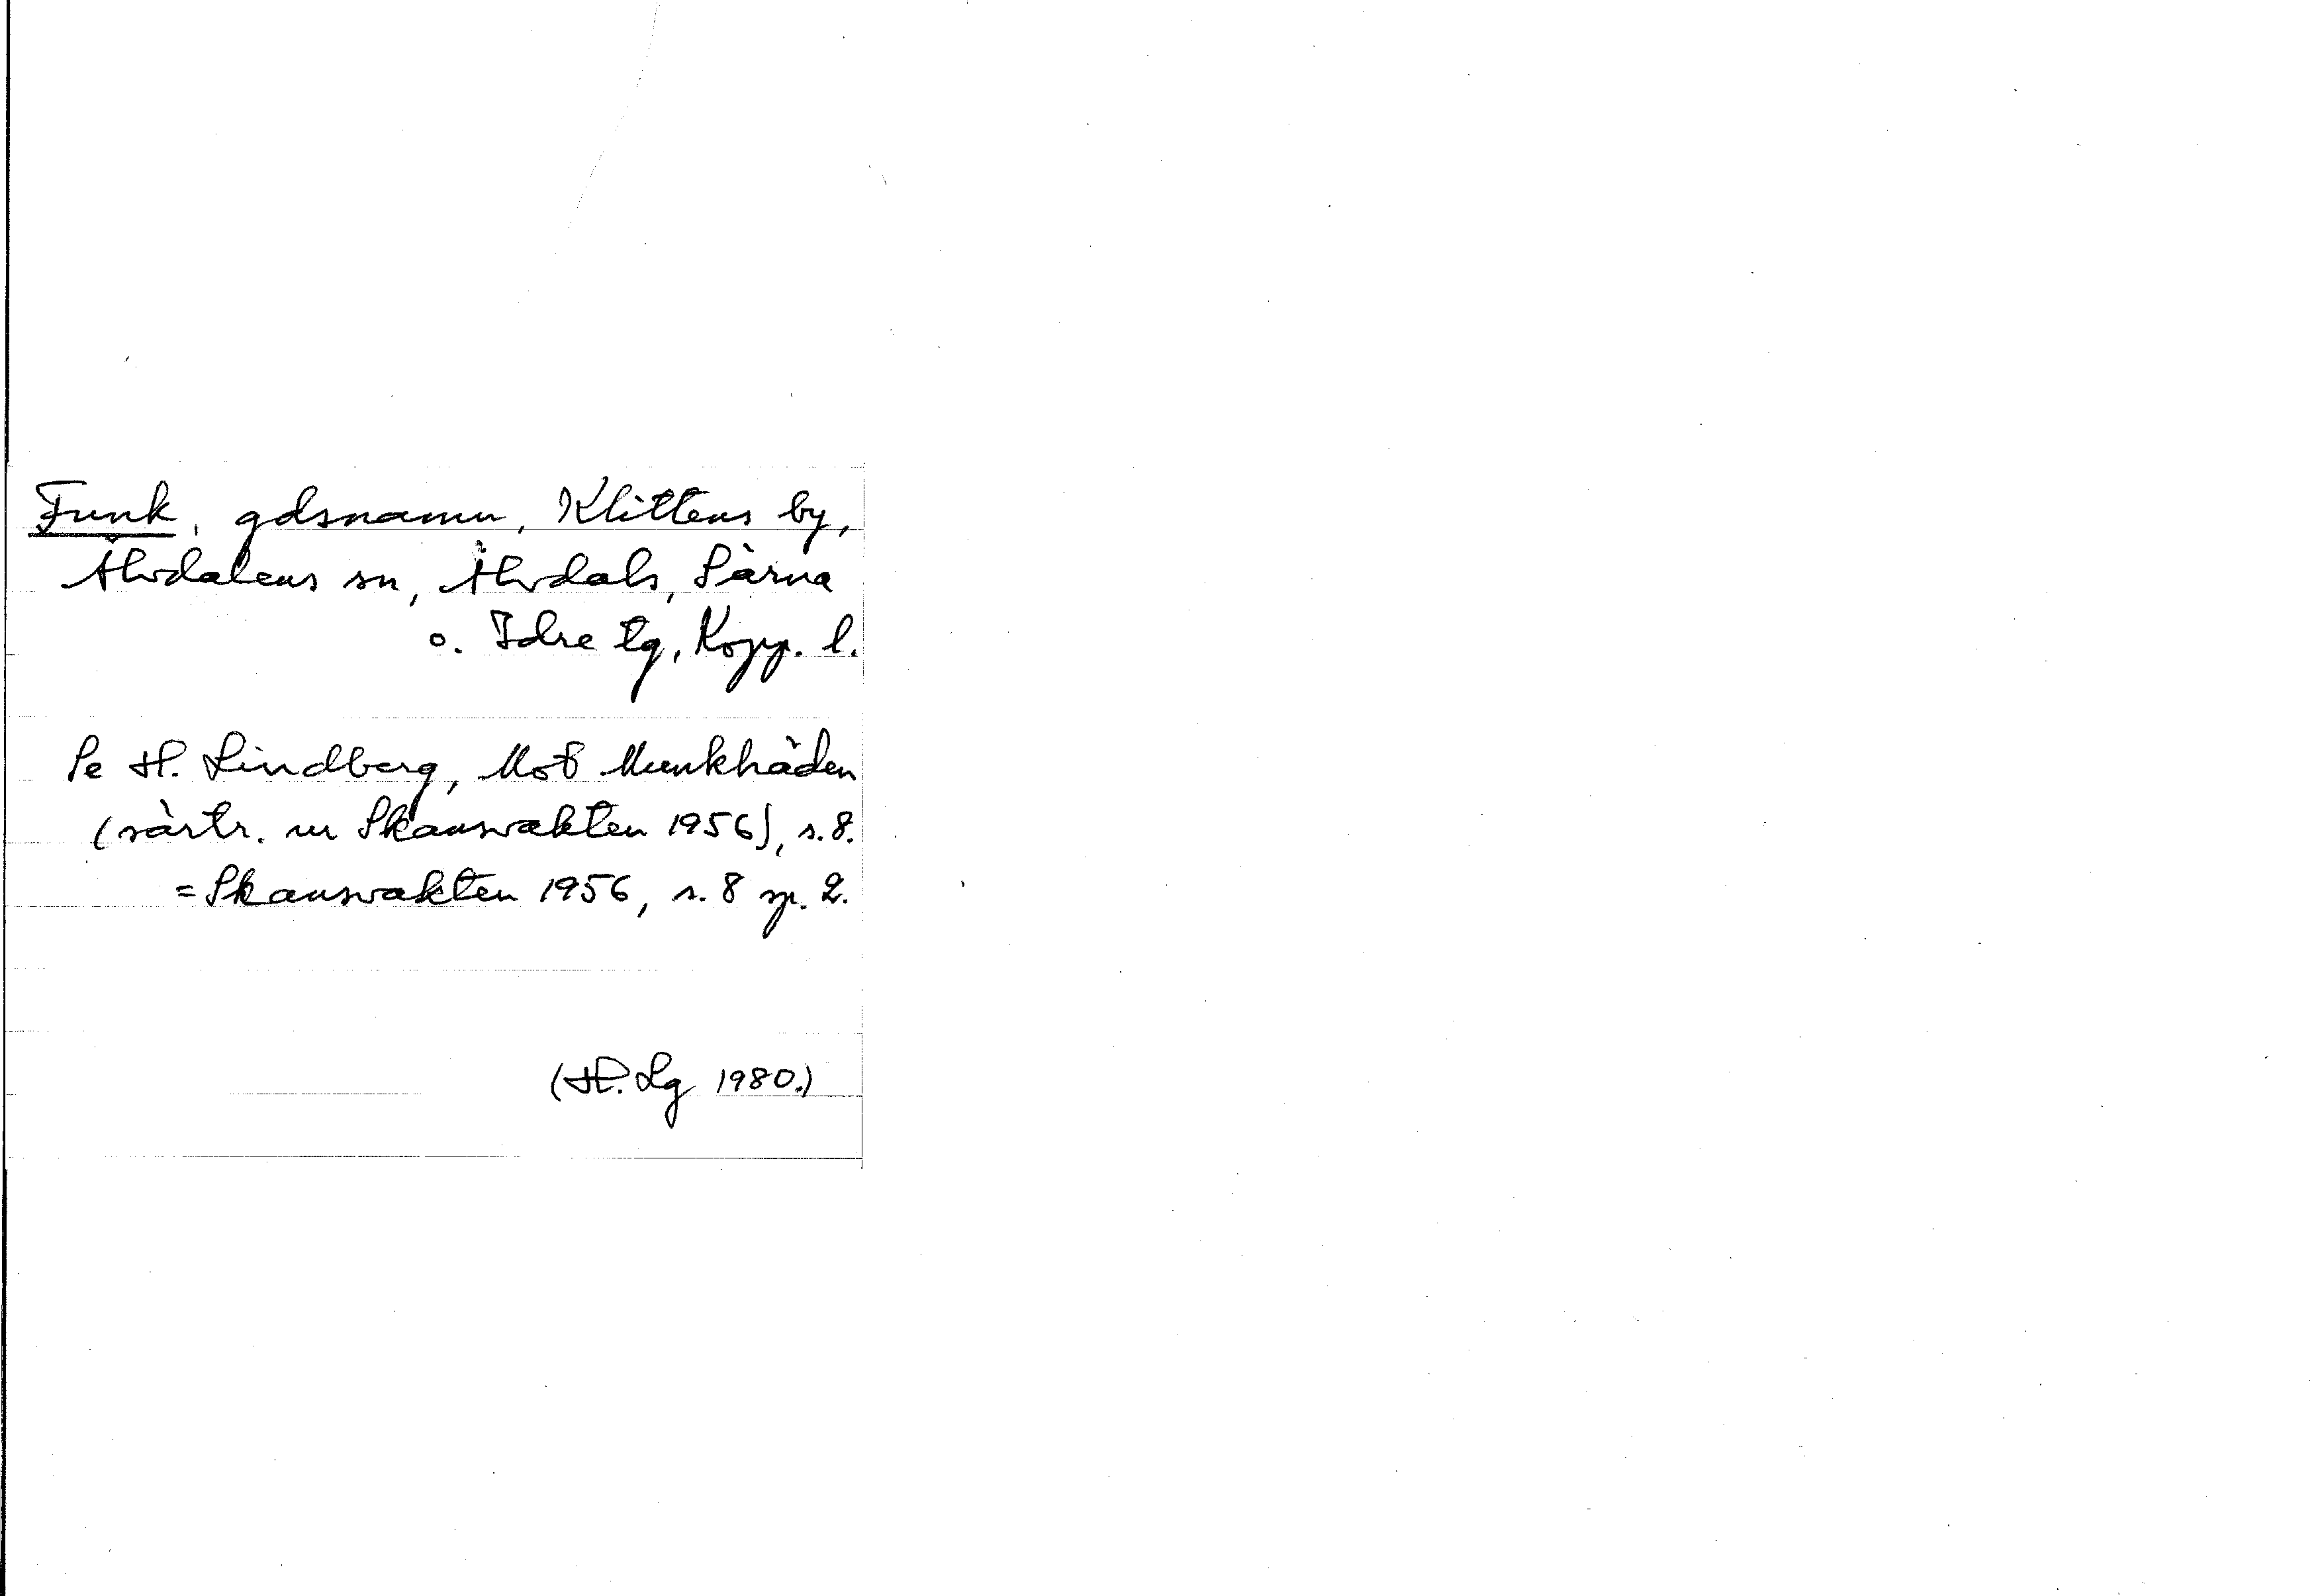 Funk, gdsnamn, Klittens by,
Älvdalens sn, Älvdals, Särna
o. Idre tg, Kopp. l.
Se H. Lindberg, Mot Munkhåden
(särtr. ur Skansvakten 1956), s.8.
= Skansvakten 1956, s. 8 sp. 2.
(H. Lg 1980.)